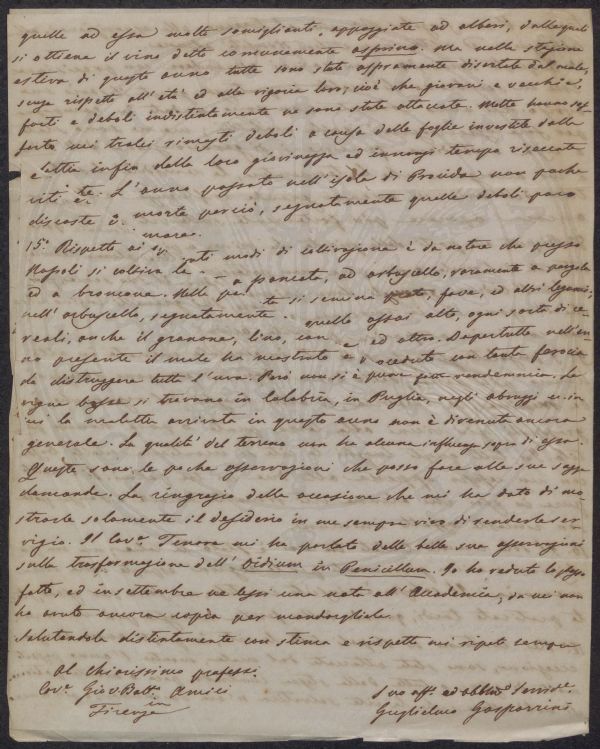 quelle ad essa molto somiglianti, appoggiate ad alberi, dalle quali
si ottiene il vino detto comunemente asprino. Ma nella stagione
estiva di questo anno tutte sono state aspramente disertate dal male,
senza rispetto all'età ed alla vigoria loro, cioè che giovani e vecchie,
forti e deboli indistintamente ne sono state attaccate. Molte hanno sof-
ferto nei tralci rimasti deboli a causa delle foglie investite dalla
 infin dalla loro giovinezza ed innanzi tempo
viti L'anno passato nell'isola di Procida non poche
 morte perciò, segnatamente quelle deboli poco
15.° Rispetto ai modi di coltivazione è da notare che presso
Napoli si coltiva a pancata, ad arbuscello, raramente a pergola
ed a broncone. Nelle si semina fave, ed altri legumi;
nell'arbuscello, segnatamente quello assai alto, ogni sorta di ce-
reali, anche il granone, lino, ed altro. Dappertutto nell'an-
no presente il male ha mostrato con tanta ferocia
da distruggere tutta l'uva. Però non si è pure fatta vendemmia. Le
vigne basse si trovano in Calabria, in Puglia, negli abruzzi e in
cui la malattia arrivata in questo anno non è divenuta ancora
generale. La qualità del terreno non ha alcuna influenza sopra di essa.
Queste sono le poche osservazioni che posso fare alle sue
domande. La ringrazio della occasione che mi ha dato di mo-
strarle solamente il desiderio in me sempre vivo di renderle ser-
vigio. Il Cav.r Tenore mi ha parlato delle belle sue osservazioni
sulla trasformazione dell'Oidium in Penicillum. Io ho veduto lo stesso
fatto, ed in settembre ne lessi una nota all'Accademia, da cui non
ho avuto ancora copia per mandargliela.
Salutandola distintamente con stima e rispetto mi ripeto sempre
Al chiarissimo profess.
Cav.r Giov Batt.a Amici
in
Firenze
Suo aff. ed obblmo Servid.e
Guglielmo Gasparrini